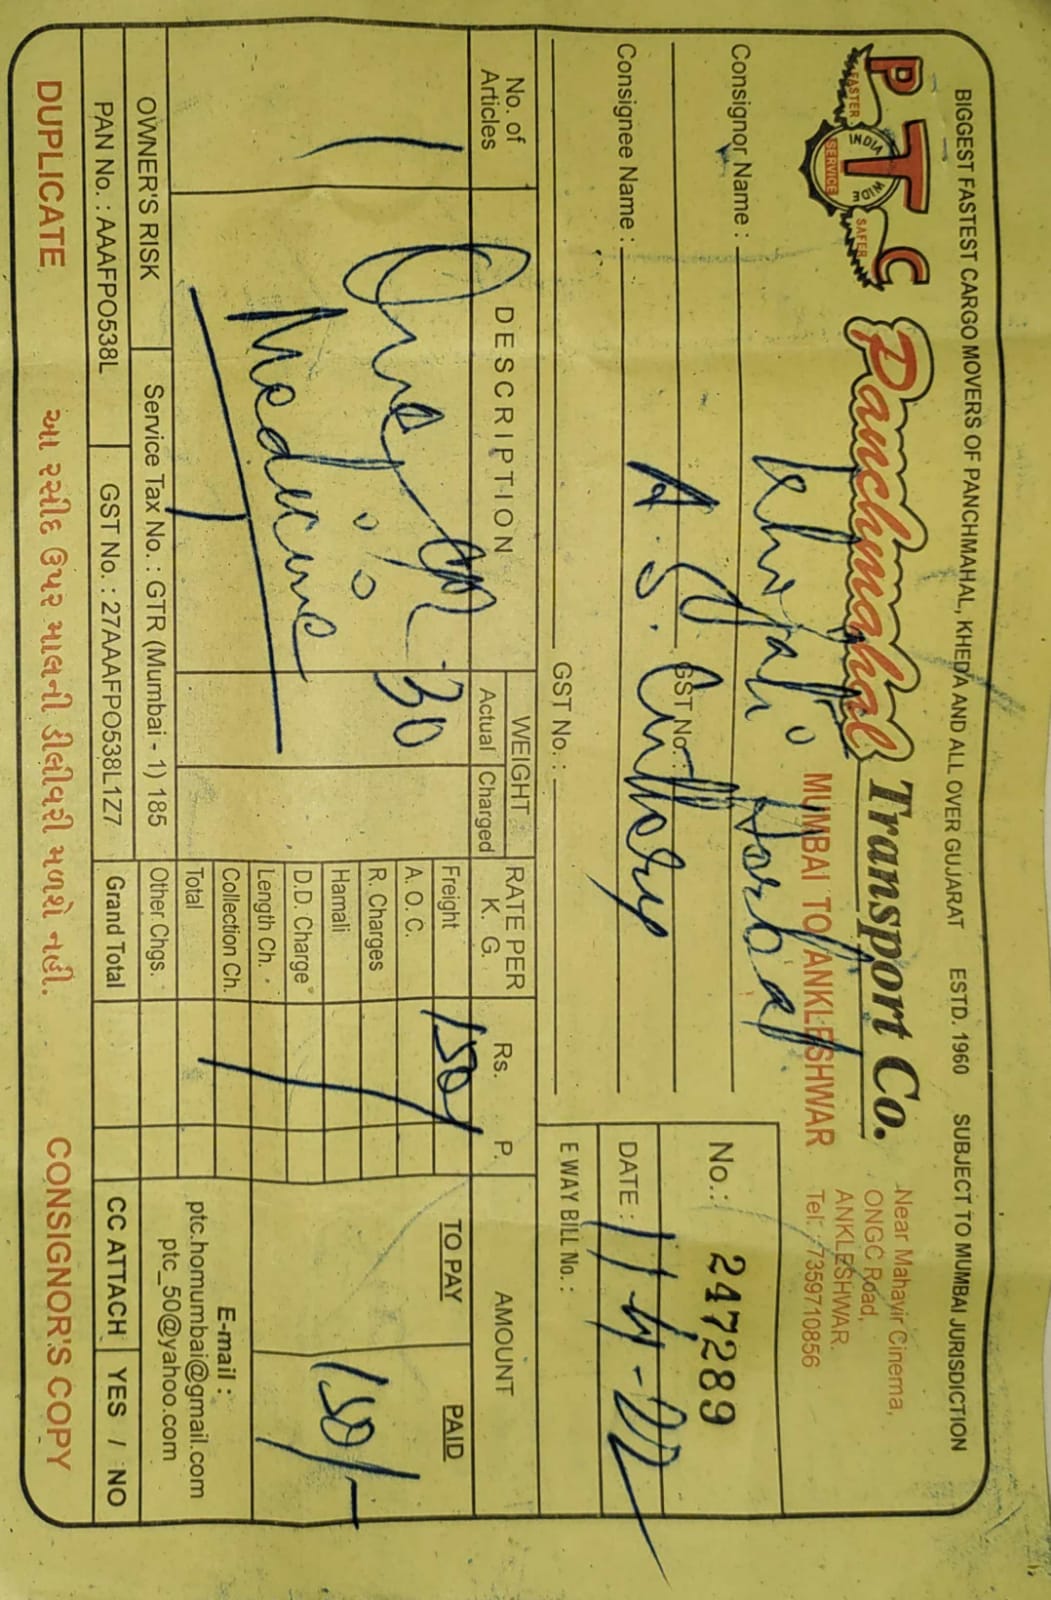 BIGGEST FASTEST CARGO MOVERS OF PANCHMAHAL, KHEDA AND ALL OVER GUJARAT ESTD. 1960 SUBJECT TO MUMBAI JURISDICTION
PTC
FASTER INDIA WIDE SAFER
SERVICE
Panchmahal Transport Co.
Near Mahavir Cinema,
ONGC Road,
ANKLESHWAR.
Tel.: 7359710856
MUMBAI TO ANKLESHWAR
Consignor Name :
GST No. :
No.: 247289
Consignee Name : A. S.
DATE :
GST No. :
E WAY BILL No. :
No. of Articles DESCRIPTION WEIGHT RATE PER K. G. Rs. P. AMOUNT
Actual Charged TO PAY PAID
1 One 30 Freight 150/ 150/-
Medicine
A. O. C.
R. Charges
Hamali
D.D. Charge
Length Ch.
Collection Ch.
Total
Other Chgs.
Grand Total
E-mail :
ptc.homumbai@gmail.com
ptc_50@yahoo.com
OWNER'S RISK Service Tax No. : GTR (Mumbai - 1) 185
PAN No. : AAAFPO538L GST No. : 27AAAFPO538L1Z7
CC ATTACH YES / NO
DUPLICATE આ રસીદ ઉપર માલની ડીલીવરી મળશે નહી. CONSIGNOR'S COPY